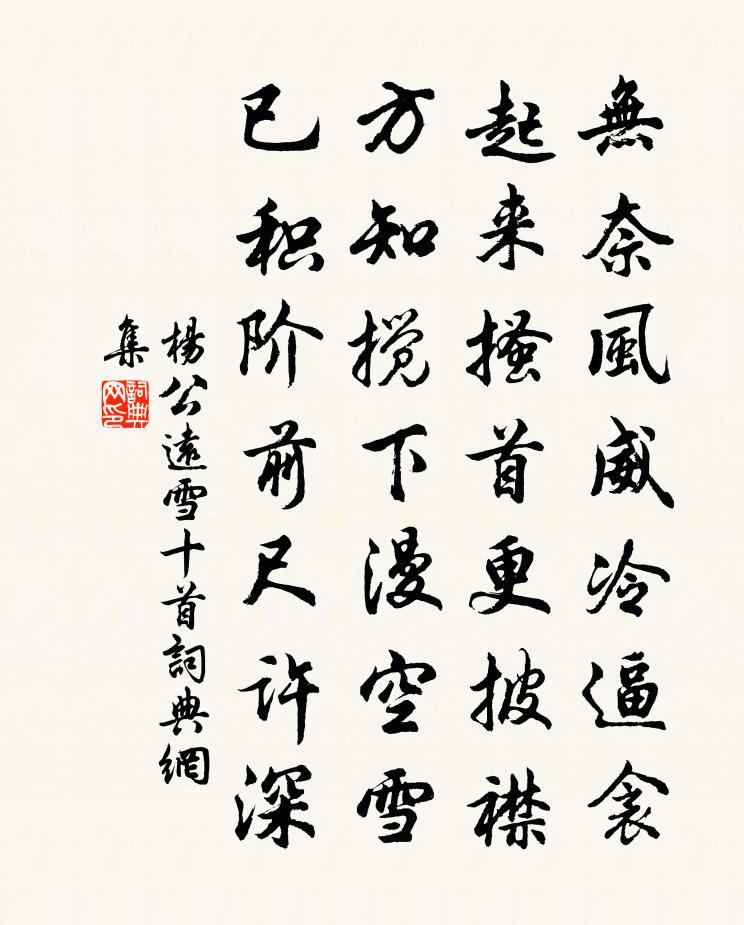 無奈風威冷逼衾
起来搔首更披襟
方知搅下漫空雪
已积阶前尺许深
楊公遠雪十首詞典網
集
詞典
网印